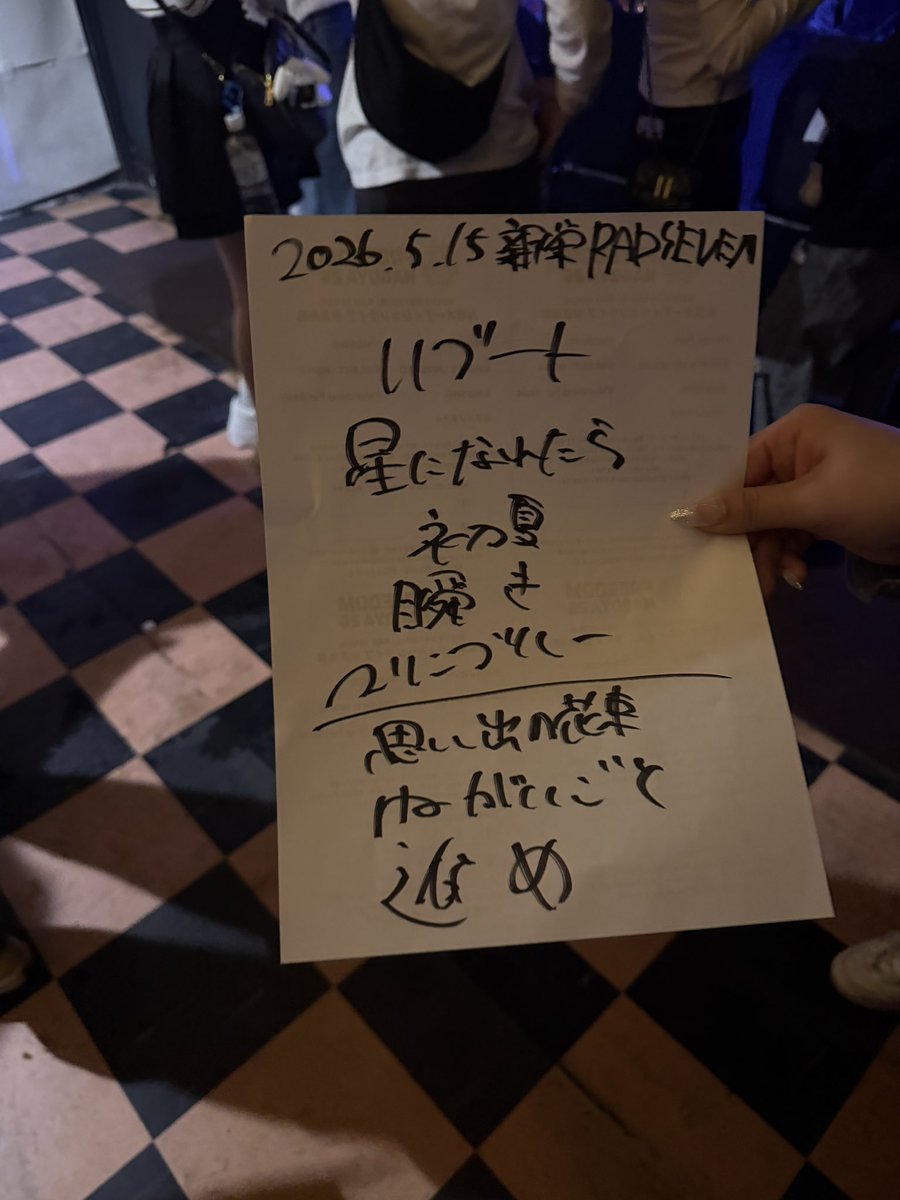 2026.5.15 新栄 RAD SEVEN
リブート
星になれたら
初夏
瞬き
思い出の花束
ねがいごと
進め